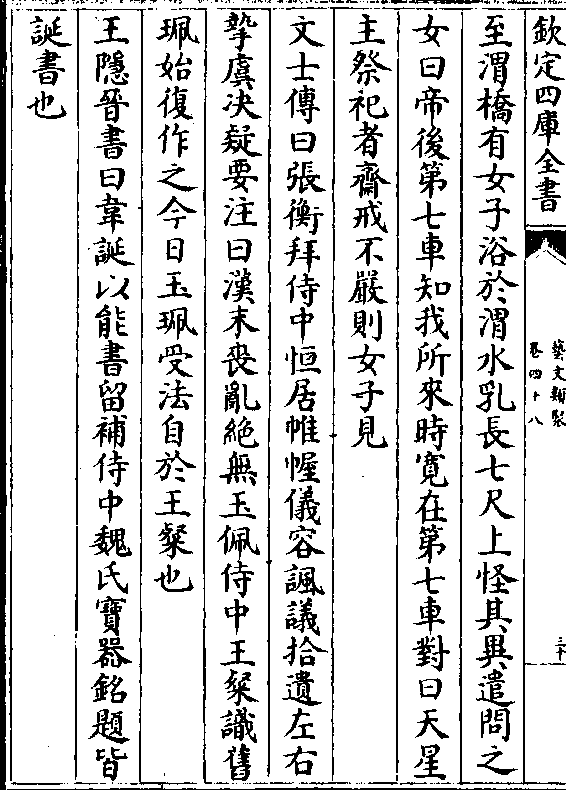 欽定四庫全書
藝文類聚
卷四十八
三十
至渭橋有女子浴於渭水乳長七尺上怪其異遣問之
女曰帝後第七車知我所來時寛在第七車對曰天星
主祭祀者齋戒不嚴則女子見
文士傳曰張衡拜侍中恒居帷幄儀容諷議拾遺左右
摯虞决疑要注曰漢末喪亂絶無玉佩侍中王粲識舊
珮始復作之今日玉珮受法自於王粲也
王隱晉書曰韋誕以能書留補侍中魏氏寶器銘題皆
誕書也